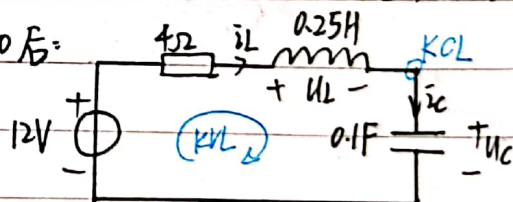 0后:
4Ω
iL
0.25H
KCL
+ UL -
iC
12V
+
-
KVL
0.1F
+
UC
-